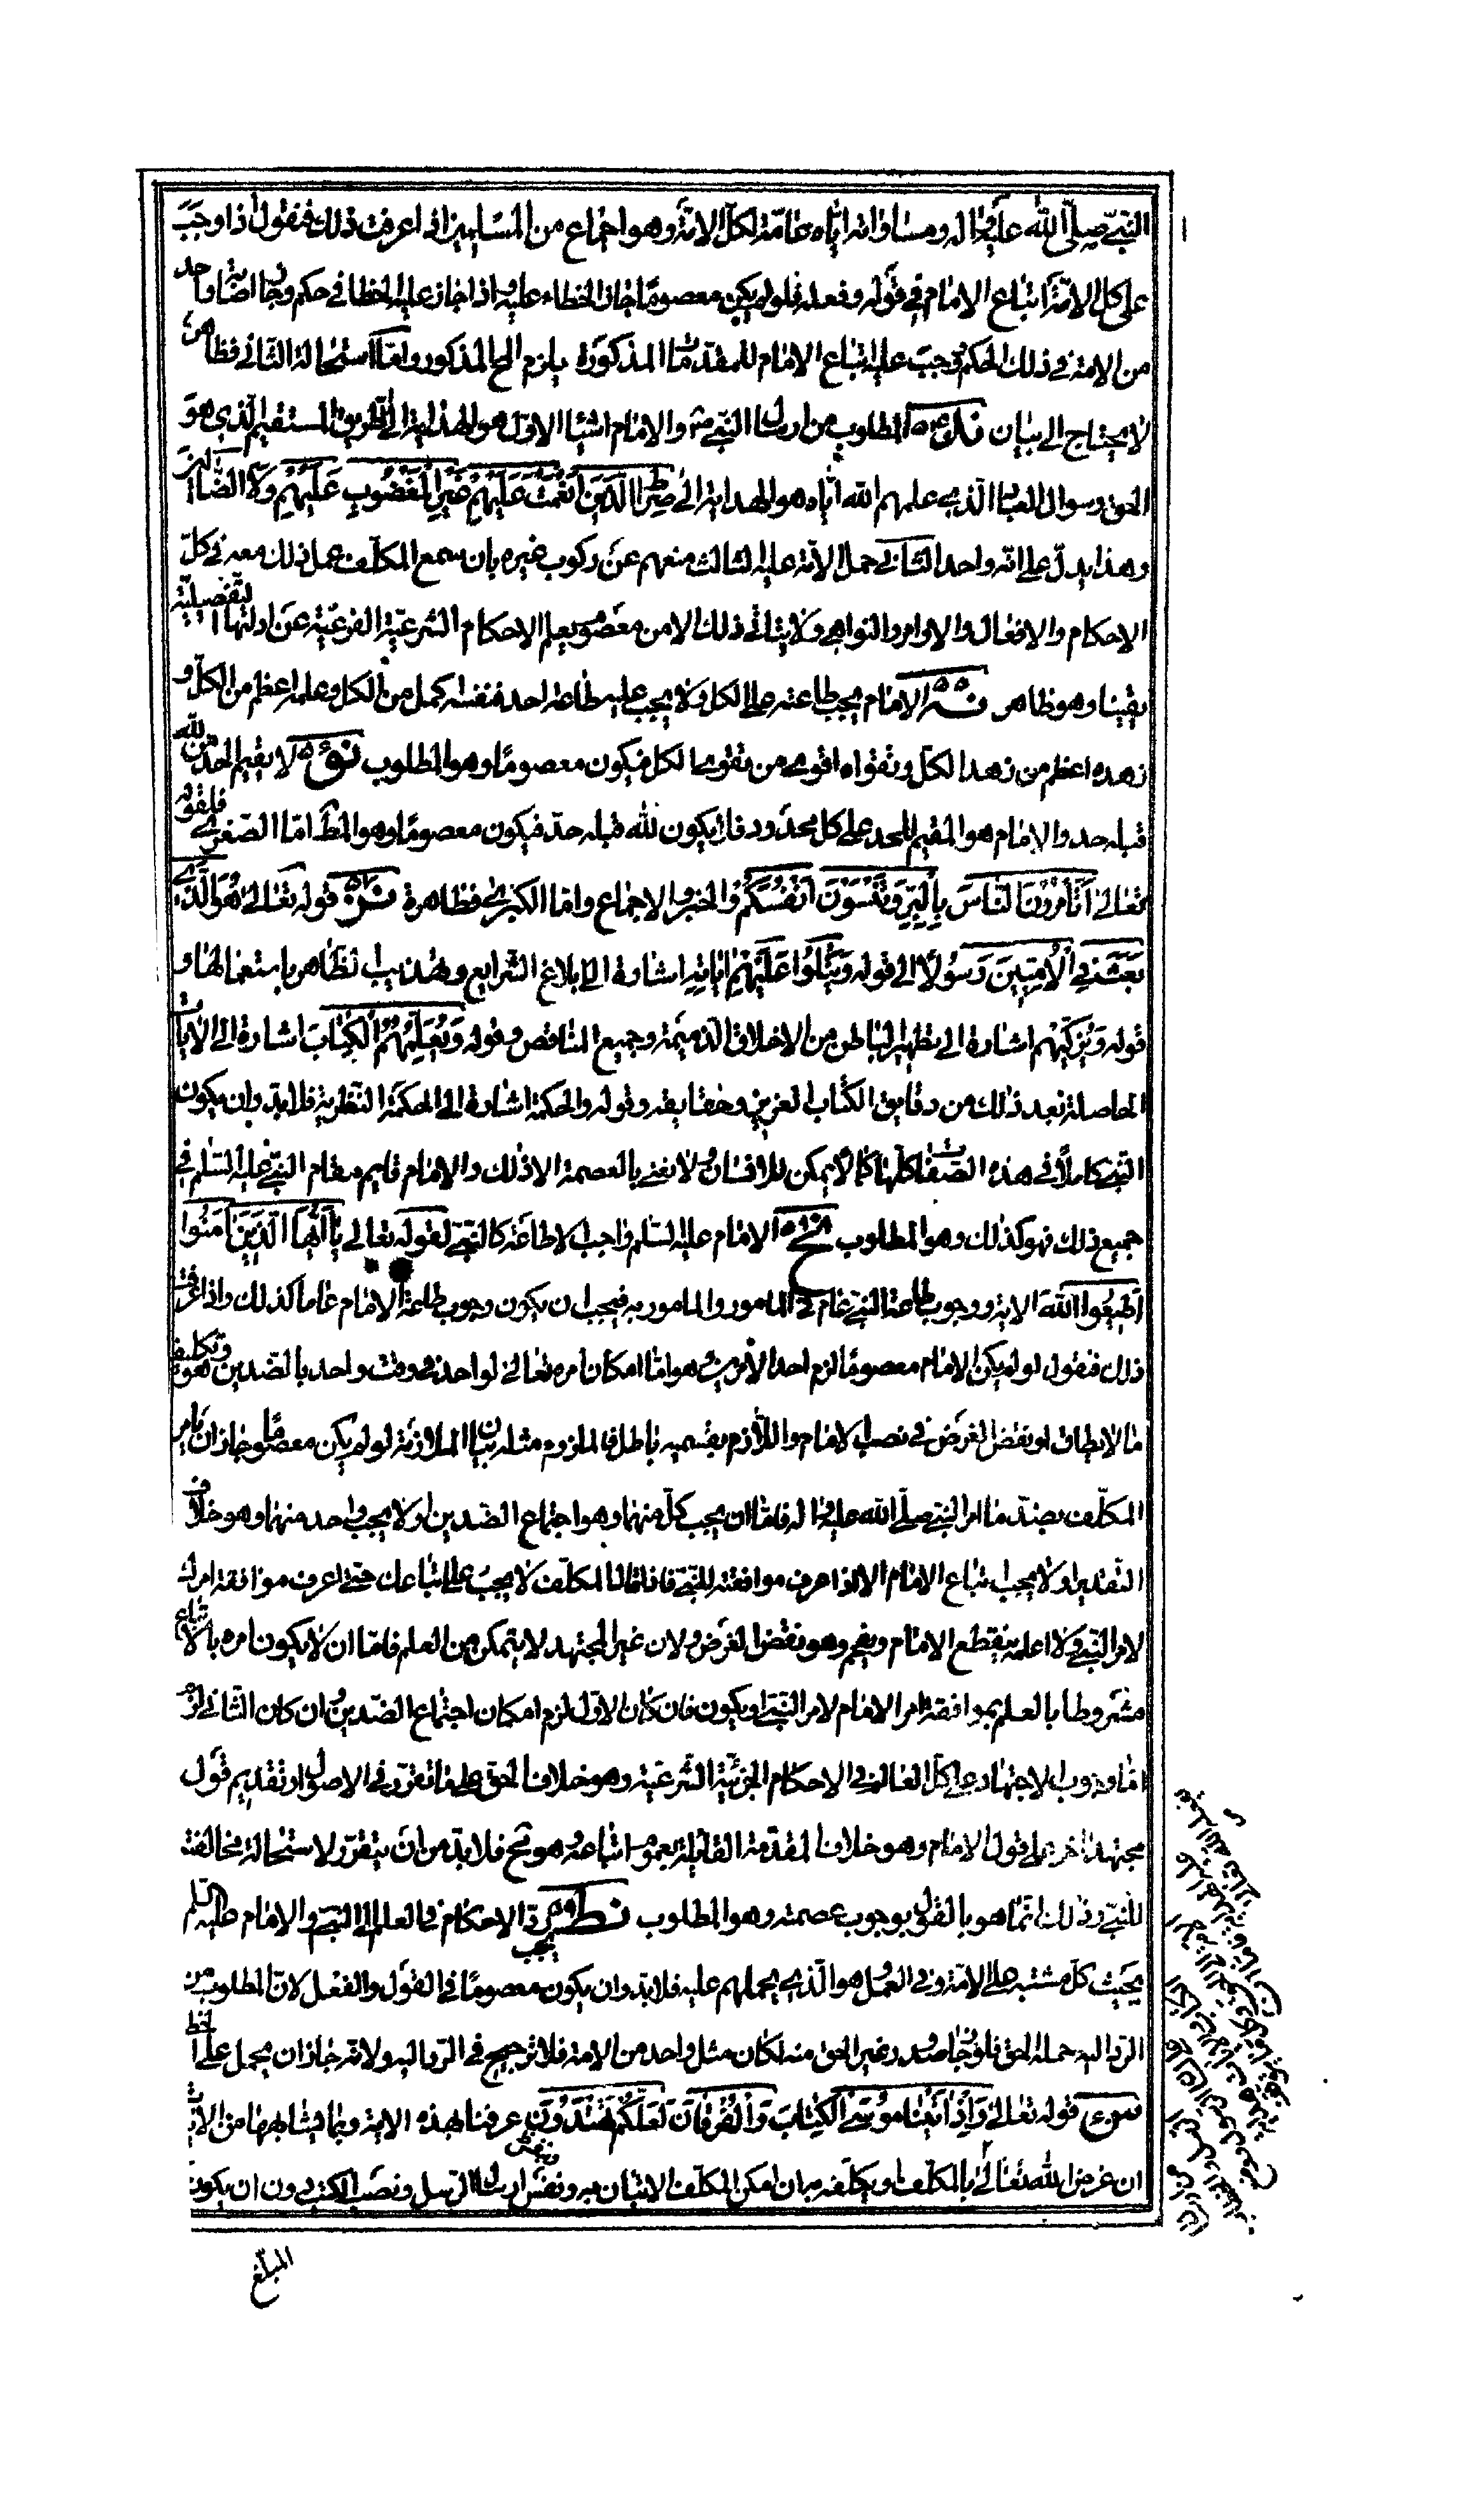 النبي صلى الله عليه واله ومساواته اياه عامة لكل الامة وهو اجماع من المسلمين اذا عرفت ذلك فنقول اذا وجب
على كل الامة اتباع الامام في قوله وفعله فلو لم يكن معصوما جاز الخطاء عليه واذا جاز عليه الخطا في حكم وجاز اصابة واحد
من الامة في ذلك الحكم وجب عليه اتباع الامام للمقدمات المذكورة يلزم المح المذكور واما استحالة الثاني فظاهر
لا يحتاج الى بيان المطلوب من ارسال النبي ص والامام اشياء الاول هو الهداية الى الطريق المستقيم الذي هو
الحق وسوال العباد الذي علمهم الله اياه هو الهداية الى صراط الذين انعمت عليهم غير المغضوب عليهم ولا الضالين
وهذا يدل على انه واحد الثاني حمل الامة عليه الثالث منعهم عن ركوب غيره بان سمع المكلف عمل ذلك معه في كل
الاحكام والافعال والاوامر والنواهي ولا يتاتى ذلك الا من معصوم يعلم الاحكام الشرعية الفرعية عن ادلتها التفصيلية
يقينا وهو ظاهر الامام يجب طاعته على الكل ولا يجب عليه طاعة احد فنفسه اكمل من الكل وعلمه اعظم من الكل و
زهده اعظم من زهد الكل وتقواه اقوى من تقوى الكل فيكون معصوما وهو المطلوب لا يقيم الحد من لله
قبله حد والامام هو المقيم للحد على كل محدود فلا يكون لله قبله حد فيكون معصوما وهو المط اما الصغرى فلقوله
تعالى اتامرون الناس بالبر وتنسون انفسكم والخبر والاجماع واما الكبرى فظاهرة قوله تعالى هو الذي
بعث في الاميين رسولا الى قوله ويتلوا عليهم اياته اشارة الى ابلاغ الشرايع وتهذيب الظاهر باستعمالها و
قوله ويزكيهم اشارة الى تطهير الباطن من الاخلاق الذميمة وجميع النناقص وقوله ويعلمهم الكتاب اشارة الى الايات
الحاصلة بعد ذلك من دقايق الكتاب العزيز وحقايقه وقوله والحكمة اشارة الى الحكمة النظرية فلا بد وان يكون
النبي كاملا في هذه الصفات كلها كما لا يمكن للانسان ولا نعني بالعصمة الا ذلك والامام قايم مقام النبي عليه السلم في
جميع ذلك فهو كذلك وهو المطلوب الامام عليه السلم واجب الاطاعة كالنبي لقوله تعالى يا ايها الذين امنوا
اطيعوا الله الاية ووجوب طاعة النبي عام في المامور والمامور به فيجب ان يكون وجوب طاعة الامام عاما كذلك واذا عرفت
ذلك فنقول لو لم يكن الامام معصوما لزم احد الامرين هو اما امكان امره تعالى لواحد في وقت واحد بالضدين وهو تكليف
ما لا يطاق او نقض الغرض في نصب الامام واللازم بقسميه باطل فالملزوم مثله بيان الملازمة لو لم يكن معصوما جاز ان يامر
المكلف بضد ما امر النبي صلى الله عليه واله فاما ان يجب كل منهما وهو اجتماع الضدين او لا يجب واحد منهما وهو خلاف
التقدير او لا يجب اتباع الامام الا اذا عرف موافقته للنبي فاذا قال المكلف لا يجب على اتباعك حتى اعرف موافقة امرك
لامر النبي ولا اعلمه ينقطع الامام ويفحم وهو نقض الغرض ولان غير المجتهد لا يتمكن من العلم فاما ان لا يكون امره بالاتباع
مشروطا بالعلم بموافقة امر الامام لامر النبي او يكون فان كان الاول لزم امكان اجتماع الضدين وان كان الثاني لزم
اما وجوب الاجتهاد على كل العالم في الاحكام الجزئية الشرعية وهو خلاف الحق على ما تقرر في الاصول او تقديم قول
مجتهد اخر على قول الامام وهو خلاف المقدمة القايلة بعموم اتباعه وهو مح فلا بد من ان يتقرر لا ستحالة مخالفته
للنبي وذلك انما هو بالقول بوجوب عصمته وهو المطلوب يجب رد الاحكام في العلم الى النبي والامام عليه السلم
بحيث كل مشتبه على الامة وفي العمل هو الذي يحملهم عليه فلا بد وان يكون معصوما في القول والفعل لان المطلوب من
الرد اليه حمله الحق فلو جاز صدور غير الحق منه لكان مثل واحد من الامة فلا ترجيح في الرد اليه ولانه جاز ان يحمل على الخطا
قوله تعالى واذ اتينا موسى الكتاب والفرقان لعلكم تهتدون عرفنا بهذه الاية وبما يشابهها من الايات
ان غرض الله تعالى بالمكلف او يكلفه ببيان امكن المكلف الاتيان به ونفس ارسال الرسل ونصب الكتب دون ان يكون
المبلغ